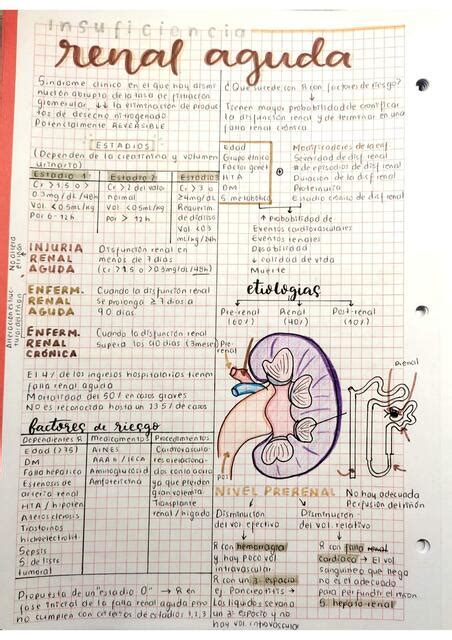 Insuficiencia
renal aguda
Síndrome clínico en el que hay dismi
nución abrupta de la tasa de filtración
glomerular, ↓↓ la eliminación de produc
tos de desecho nitrogenado
Potencialmente REVERSIBLE
ESTADIOS
(Dependen de la creatinina y volumen
urinario)
Estadio 1 Estadio 2 Estadio 3
Cr >2 del valor
normal
Vol <0.5ml/kg
Por > 12h
Vol <0.5ml/kg
Por 6-12h
Cr >3 o
≥4mg/dL
Requieren
de diálisis
Vol <0.3
ml/kg/24h
¿Que sucede con R con factores de riesgo?
↓
Tienen mayor probabilidad de cronificar
la disfunción renal y de terminar en una
falla renal crónica.
Edad
Grupo étnico
Factor genét
HTA
DM
S metabólico
Modificadores de la enf
Severidad de disf renal
# de episodios de disf renal
Duración de la disf renal
Proteinuria
Estadio crónico de disf renal
↑ Probabilidad de
Eventos cardiovasculares
Eventos renales
Discapacidad
↓ calidad de vida
Muerte
INJURIA
RENAL
AGUDA
Disfunción renal en
menos de 7 días
(cr >1.5 o >0.3mg/dL/48h)
ENFERM.
RENAL
AGUDA
Cuando la disfunción renal
se prolonga ≥ 7 días a
90 días.
ENFERM.
RENAL
CRÓNICA
Cuando la disfunción renal
supera los 90 días (3 meses)
El 4% de los ingresos hospitalarios tienen
falla renal aguda
Mortalidad del 50% en casos graves
NO es reconocida hasta un 23.5% de casos
etiologías
Pre-renal Renal Post-renal
(60%) (40%) (10%)
Pre-
renal
Renal
Pos
factores de riesgo
Dependientes R Medicamentos Procedimientos
Edad (>75)
DM
Falla hepática
Estenosis de
arteria renal
HTA / hipoten
Aterosclerosis
Trastornos
hidroelectrolit.
Sepsis
S de lisis
tumoral
AINES
ARA II / IECA
Aminoglucosid
Anfotericina
Cardiovascula
res
ya que pierden
gran volemia
Transplante
renal / hígado
Propuesta de un "estadio 0" → R en
fase inicial de la falla renal aguda pero
no cumplen con criterios de estadios 1,2,3
NIVEL PRERENAL
Disminución
del vol efectivo
↓
R con hemorragia
y hay poco vol
intravascular
R con un 3º espacio
ej Pancreatitis →
Los líquidos se van a
un 3º espacio y no
hay vol intravascular
No hay adecuada
Perfusión del riñón
Disminución
del vol. relativo
↓
R con falla
cardíaca → El vol
sanguíneo que llega
no es el adecuado
para perfundir el riñón
S hepato renal